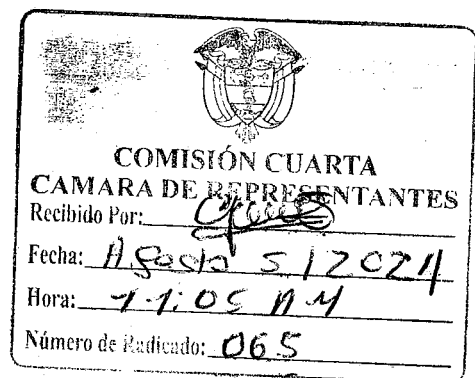 COMISIÓN CUARTA
CAMARA DE REPRESENTANTES
Recibido Por:
Fecha: Agosto 5/2024
Hora: 11:05 AM
Número de Radicado: 065